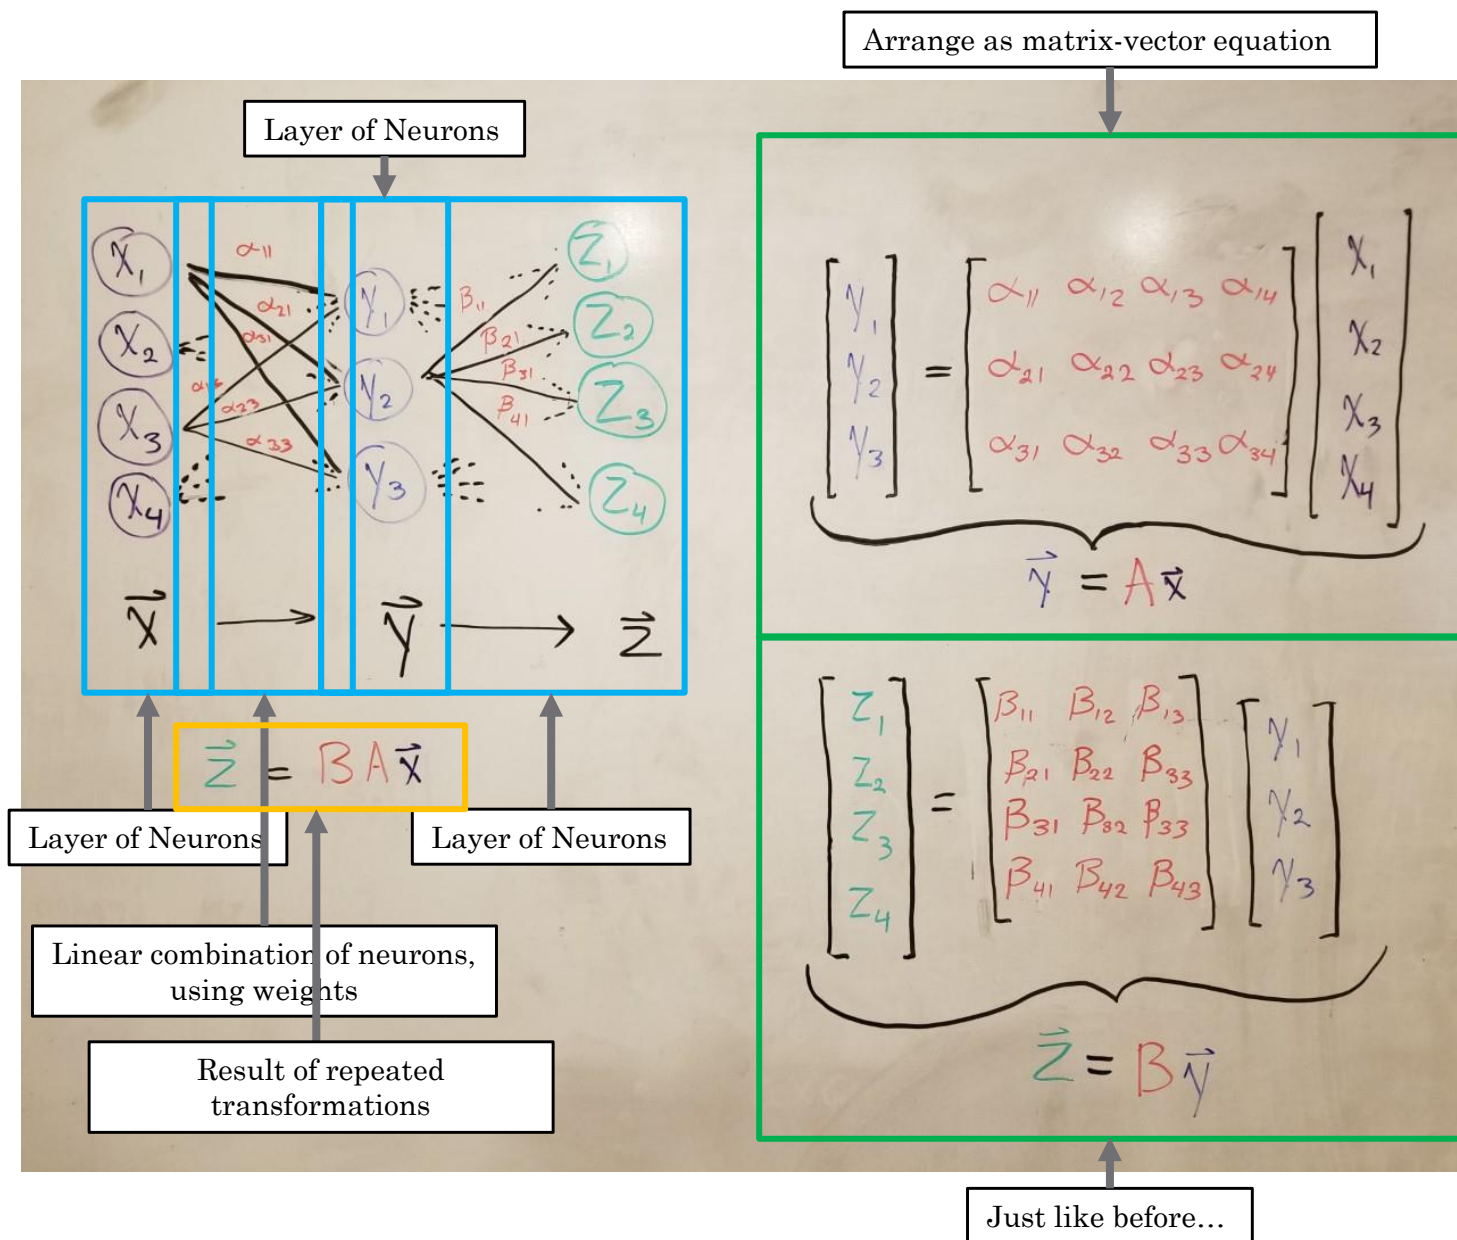 Arrange as matrix-vector equation
Layer of Neurons
X₁
X₂
X₃
X₄
α₁₁
α₂₁
α₃₁
α₂₃
α₃₃
y₁
y₂
y₃
β₁₁
β₂₁
β₃₁
β₄₁
Z₁
Z₂
Z₃
Z₄
x⃗ → y⃗ → z⃗
z⃗ = B A x⃗
Layer of Neurons
Layer of Neurons
Linear combination of neurons,
using weights
Result of repeated
transformations
y₁ α₁₁ α₁₂ α₁₃ α₁₄ x₁
y₂ = α₂₁ α₂₂ α₂₃ α₂₄ x₂
y₃ α₃₁ α₃₂ α₃₃ α₃₄ x₃
x₄
y⃗ = A x⃗
Z₁ β₁₁ β₁₂ β₁₃ y₁
Z₂ β₂₁ β₂₂ β₃₃ y₂
Z₃ = β₃₁ β₃₂ β₃₃ y₃
Z₄ β₄₁ β₄₂ β₄₃
z⃗ = B y⃗
Just like before…